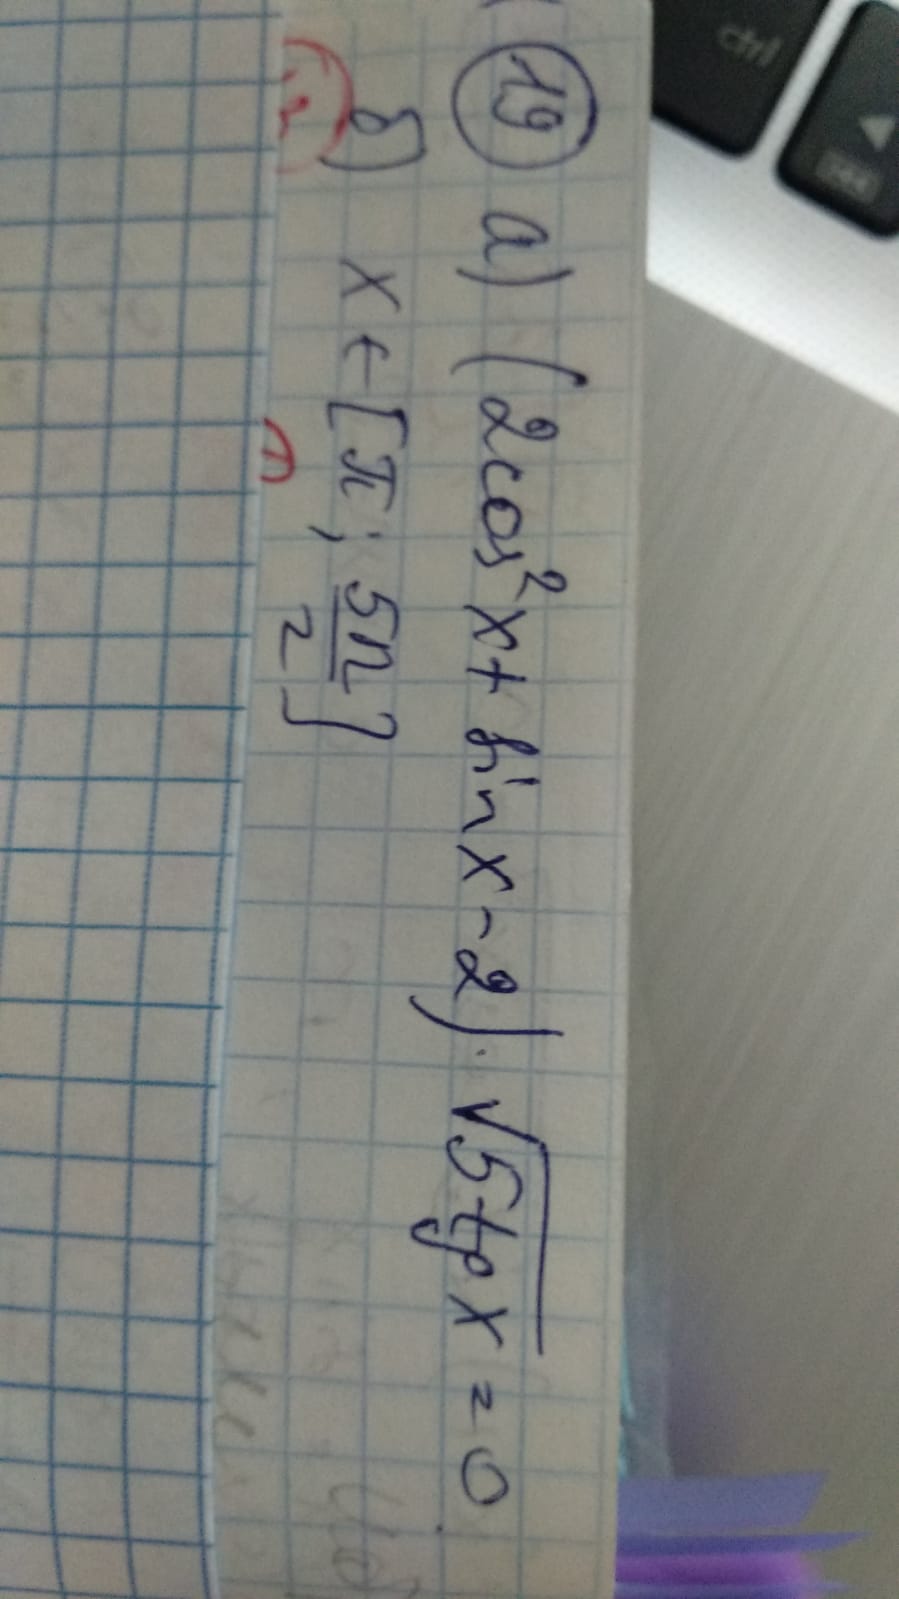 ctrl
19 а) (2cos²x + sin x - 2) · √5tg x = 0
б) x ∈ [π; 5π/2]